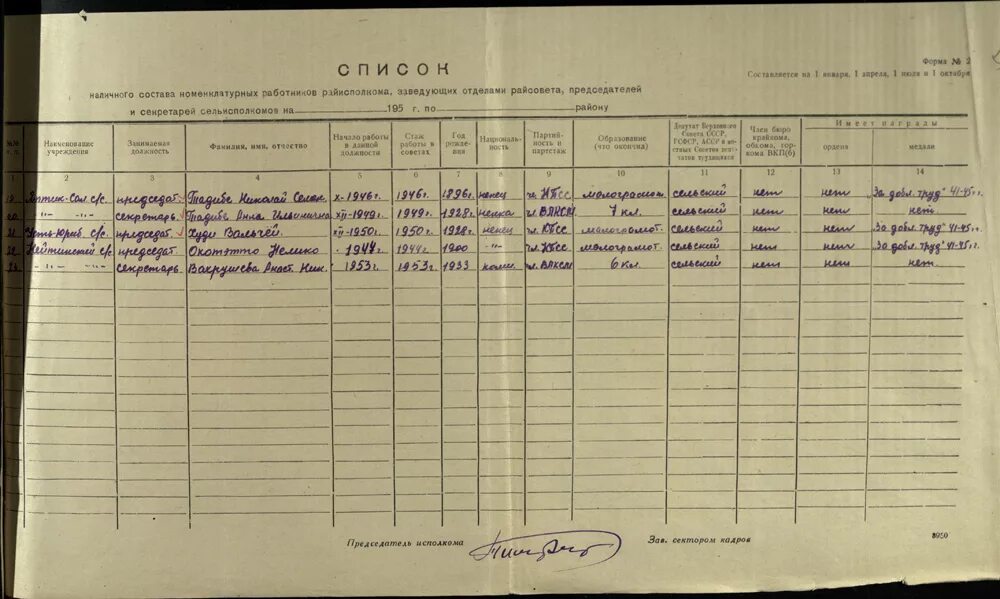 Форма № 2
Составляется на 1 января, 1 апреля, 1 июля и 1 октября
СПИСОК
наличного состава номенклатурных работников райисполкома, заведующих отделами райсовета, председателей
и секретарей сельисполкомов на 195 г. по району
№№ п. п. Наименование учреждения Занимаемая должность Фамилия, имя, отчество Начало работы в данной должности Стаж работы в советах Год рождения Национальность Партийность и партстаж Образование (что окончил) Депутат Верховного Совета СССР, РСФСР, АССР и местных Советов депутатов трудящихся Член бюро крайкома, обкома, горкома ВКП(б) Имеет награды ордена медали
2 3 4 5 6 7 8 9 10 11 12 13 14
с/с. председат. Тадибе Николай X-1946г. 1946г. 1896г. ненец чл. КПСС малограмот. сельский нет нет "За добл. труд" 41-45г.
-"- -"- секретарь Тадибе Анна Ильинична XII-1949г. 1949г. 1928г. ненка чл. ВЛКСМ 7 кл. сельский нет нет нет
с/с. председат. Худи Вальчей XII-1950г. 1950г. 1928г. ненец чл. КПСС малограмот. сельский нет нет "За добл. труд" 41-45г.
Нейтинский с/с. председат. Окотэтто Нелико 1944г. 1944г. 1900 -"- чл. КПСС малограмот. сельский нет нет "За добл. труд" 41-45г.
-"- -"- секретарь Вахрушева Анаст. Ник. 1953г. 1953г. 1933 коми чл. ВЛКСМ 6 кл. сельский нет нет нет
Председатель исполкома Зав. сектором кадров 8950